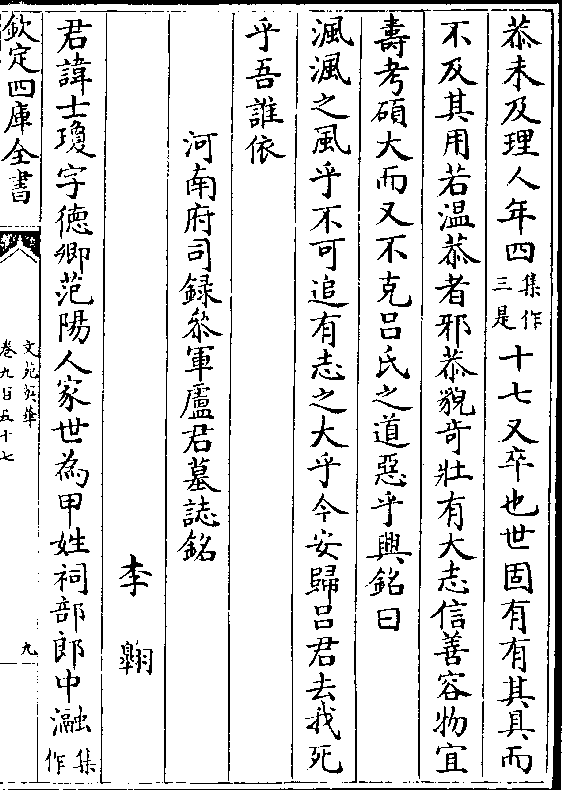 恭未及理人年四集作三是十七又卒也世固有有其具而
不及其用若温恭者邪恭貌竒壯有大志信善容物宜
壽考碩大而又不克吕氏之道惡乎興銘曰
渢渢之風乎不可追有志之大乎今安歸吕君去我死
乎吾誰依
河南府司録叅軍盧君墓誌銘
李翺
君諱士瓊字徳卿范陽人家世為甲姓祠部郎中瀜集作
欽定四庫全書
文苑英華
卷九百五十七
九